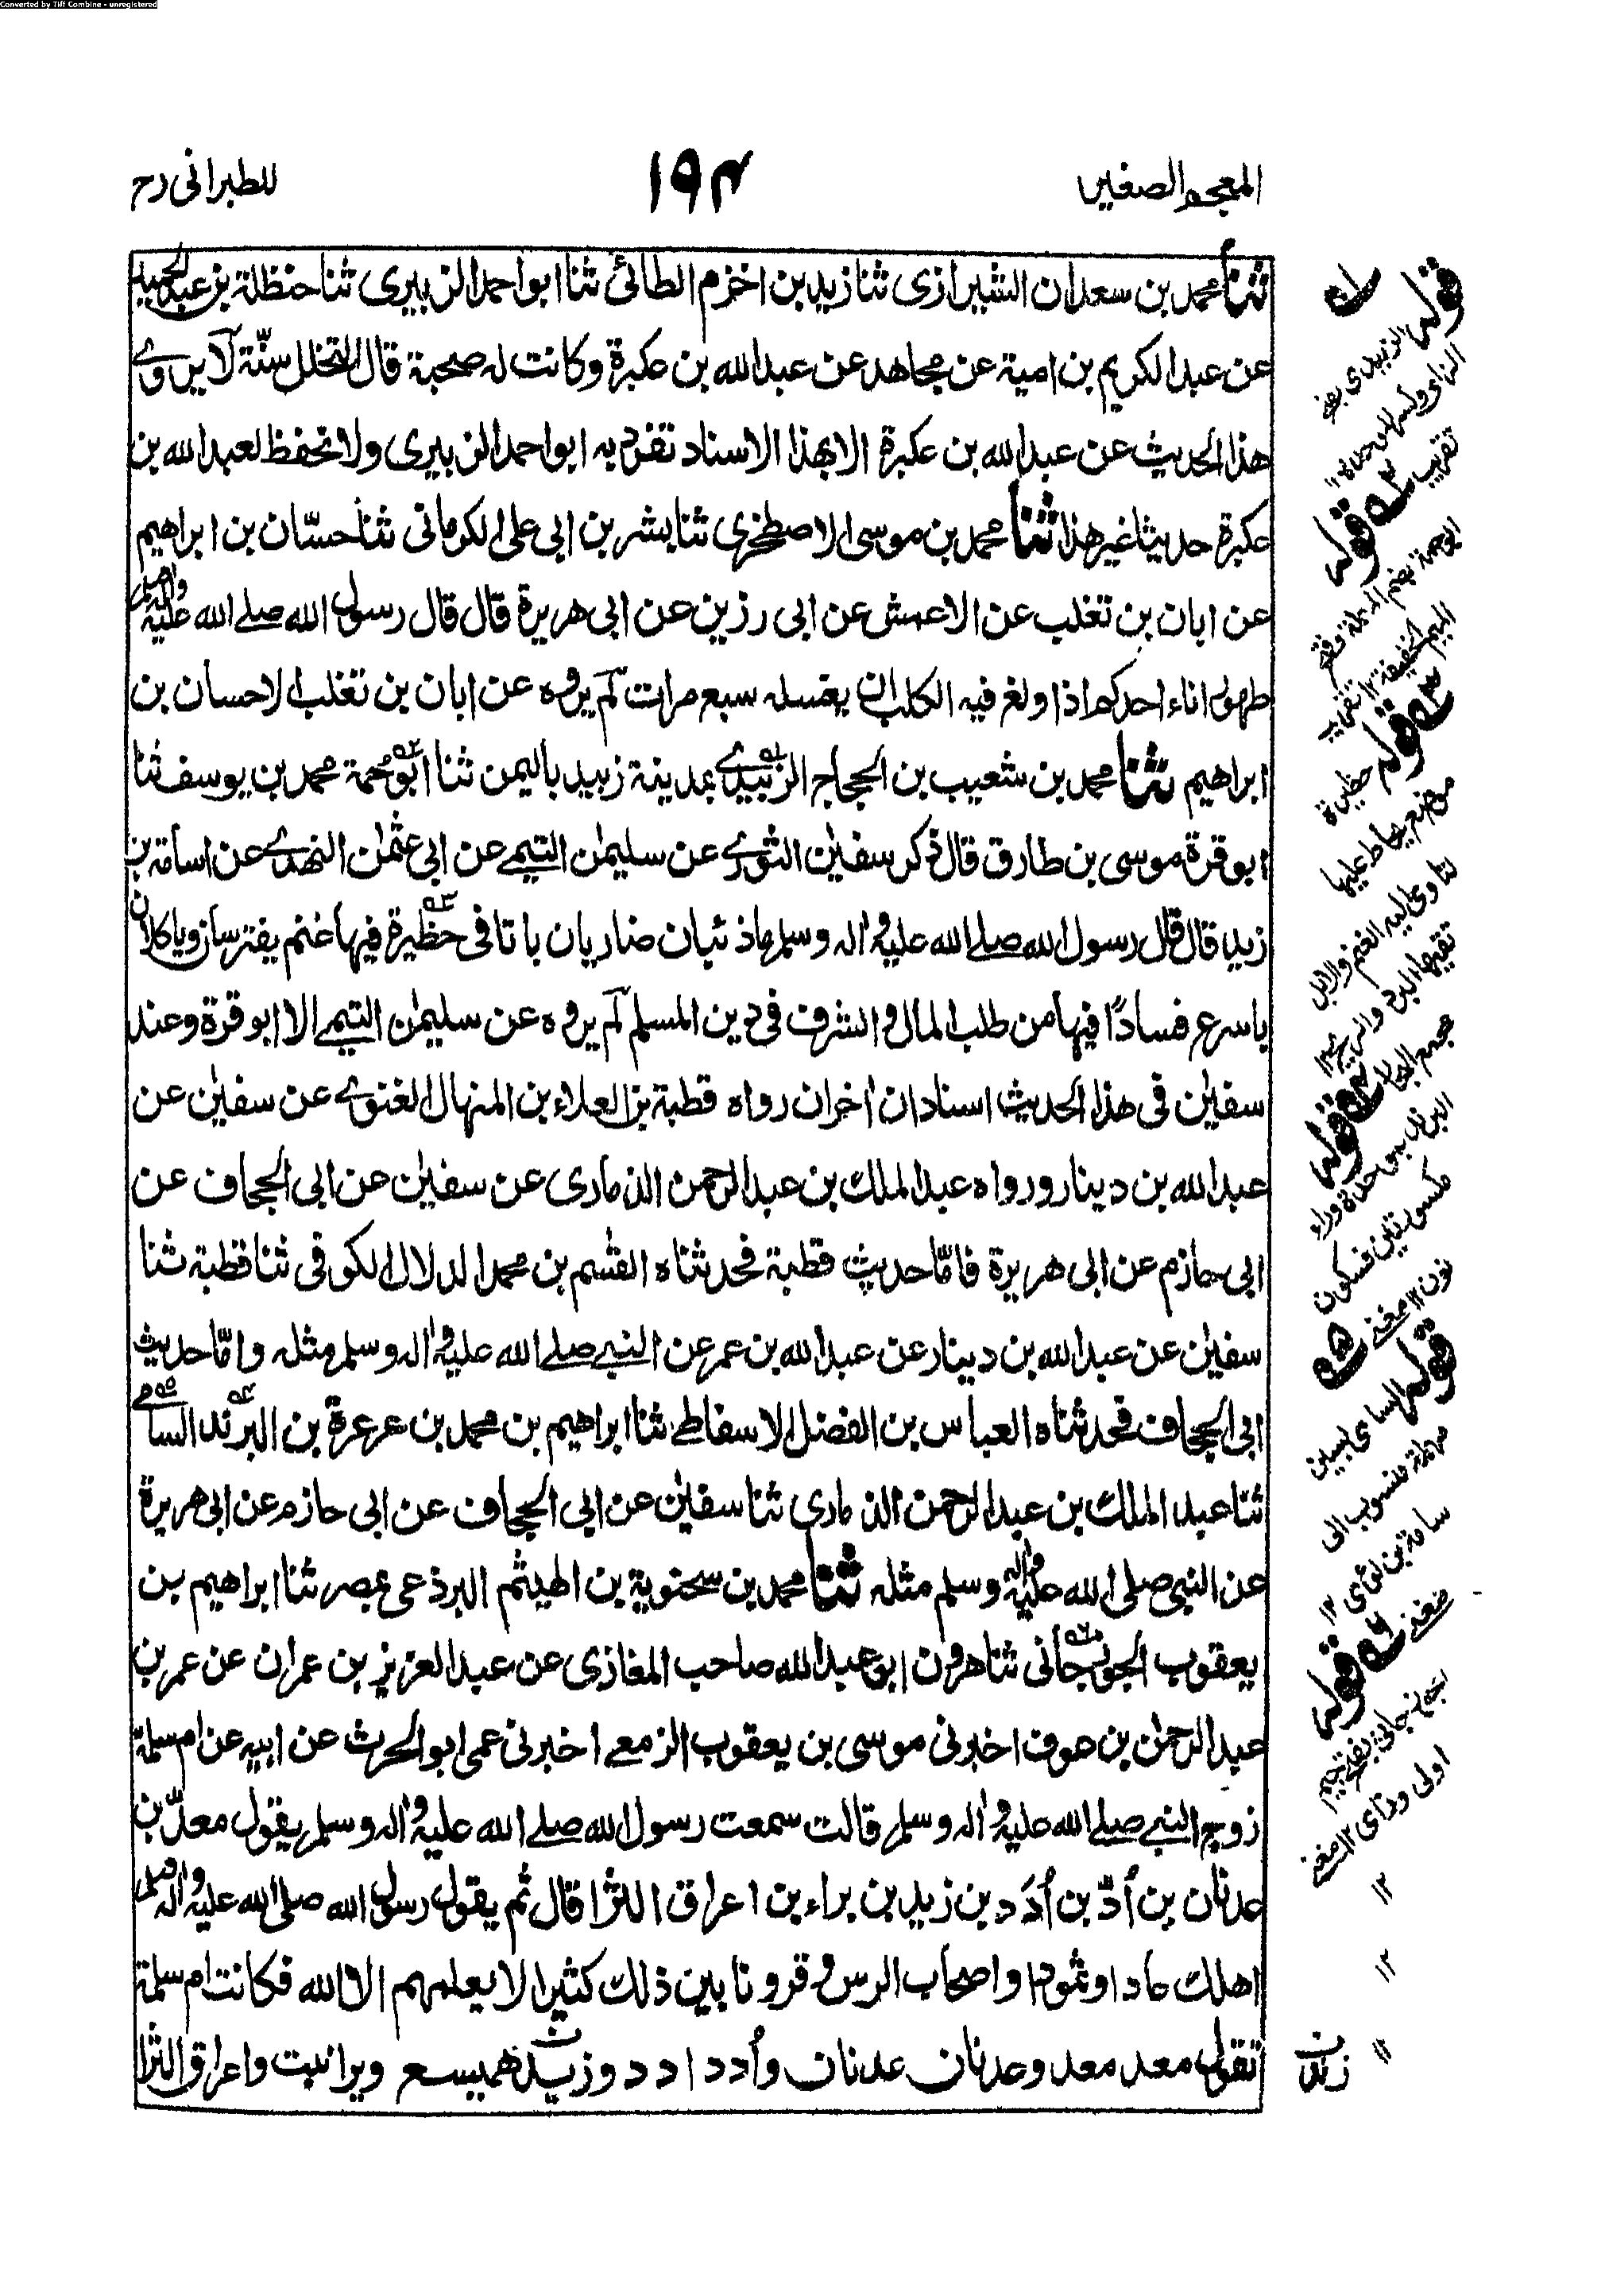 Converted by Tiff Combine - unregistered
المعجم الصغير
۱۹۴
للطبرانی رح
ثنا محمد بن سعدان الشیرازی ثنا زید بن اخزم الطائی ثنا ابو احمد الزبیری ثنا حنظلة بن عبد الحمید
عن عبد الکریم بن امیة عن مجاهد عن عبد الله بن عکبرة وکانت له صحبة قال التخلل سنّة لا یروے
هذا الحدیث عن عبد الله بن عکبرة الا بهذا الاسناد تفرد به ابو احمد الزبیری ولا نحفظ لعبد الله بن
عکبرة حدیثا غیر هذا ثنا محمد بن موسی الاصطخری ثنا بشر بن ابی علی الکرمانی ثنا حسّان بن ابراهیم
عن ابان بن تغلب عن الاعمش عن ابی رزین عن ابی هریرة قال قال رسول الله صلے الله علیه واله وسلم
طهور اناء احدکم اذا ولغ فیه الکلب ان یغسله سبع مرات لم یروه عن ابان بن تغلب الا حسان بن
ابراهیم ثنا محمد بن شعیب بن الحجاج الزبیدے بمدینة زبید بالیمن ثنا ابو حمة محمد بن یوسف ثنا
ابو قرة موسی بن طارق قال ذکر سفیٰن الثورے عن سلیمٰن التیمے عن ابی عثمٰن النهدے عن اسامة بن
زید قال قال رسول الله صلے الله علیه واله وسلم ما ذئبان ضاریان باتا فی حظیرة فیها غنم یفترسان ویاکلان
باسرع فسادًا فیها من طلب المال والشرف فی دین المسلم لم یروه عن سلیمٰن التیمے الا ابو قرة وعند
سفیٰن فی هذا الحدیث اسنادان اٰخران رواه قطبة بن العلاء بن المنهال الغنوے عن سفیٰن عن
عبد الله بن دینار ورواه عبد الملک بن عبد الرحمن الذماری عن سفیٰن عن ابی الجحاف عن
ابی حازم عن ابی هریرة فامّا حدیث قطبة فحدثناه القٰسم بن محمد الدلال الکوفی ثنا قطبة ثنا
سفیٰن عن عبد الله بن دینار عن عبد الله بن عمر عن النبے صلے الله علیه واٰله وسلم مثله وامّا حدیث
ابی الجحاف فحدثناه العباس بن الفضل الاسفاطے ثنا ابراهیم بن محمد بن عرعرة بن البرند السامے
ثنا عبد الملک بن عبد الرحمن الذماری ثنا سفیٰن عن ابی الجحاف عن ابی حازم عن ابی هریرة
عن النبی صلی الله علیه واله وسلم مثله ثنا محمد بن سحنویة بن الهیثم البرذعی بمصر ثنا ابراهیم بن
یعقوب الجوزجانی ثنا هرون ابو عبد الله صاحب المغازی عن عبد العزیز بن عمران عن عمر بن
عبد الرحمٰن بن عوف اخبرنی موسی بن یعقوب الزمعے اخبرنی عمی ابو الحرث عن ابیه عن ام سلمة
زوج النبے صلے الله علیه واٰله وسلم قالت سمعت رسول الله صلے الله علیه واٰله وسلم یقول معدّ بن
عدنان بن اُدّ بن اُدَد بن زید بن براء بن اعراق الثرا قال ثم یقول رسول الله صلی الله علیه واٰله وسلم
اهلک عادا وثمودا واصحاب الرس وقرونا بین ذلک کثیرا لا یعلمهم الا الله فکانت ام سلمة
تقول معد معد وعدنان عدنان واُدد ادد وزید همیسع ویرا نبت واعراق الثرا
قوله الزبیدی بفتح
الزای وکسر
تقریب
قوله
ابوحمة بضم المهملة وفتح
المیم الخفیفة ۱۲ تقریب
قوله حظیرة
موضع یحاط علیها
لتاوی الیه الغنم والابل
تقیها البرد والریح ۱۲
مجمع البحار قوله
البرند
مکسورتین فسکون
نون ۱۲ مغنے
قوله السامی بسین
مهملة منسوب الی
سامة بن لؤی ۱۲
مغنے قوله
الجوزجانی بفتح جیم
اولی وبزای ۱۲ مغنے
۱۲
۱۲